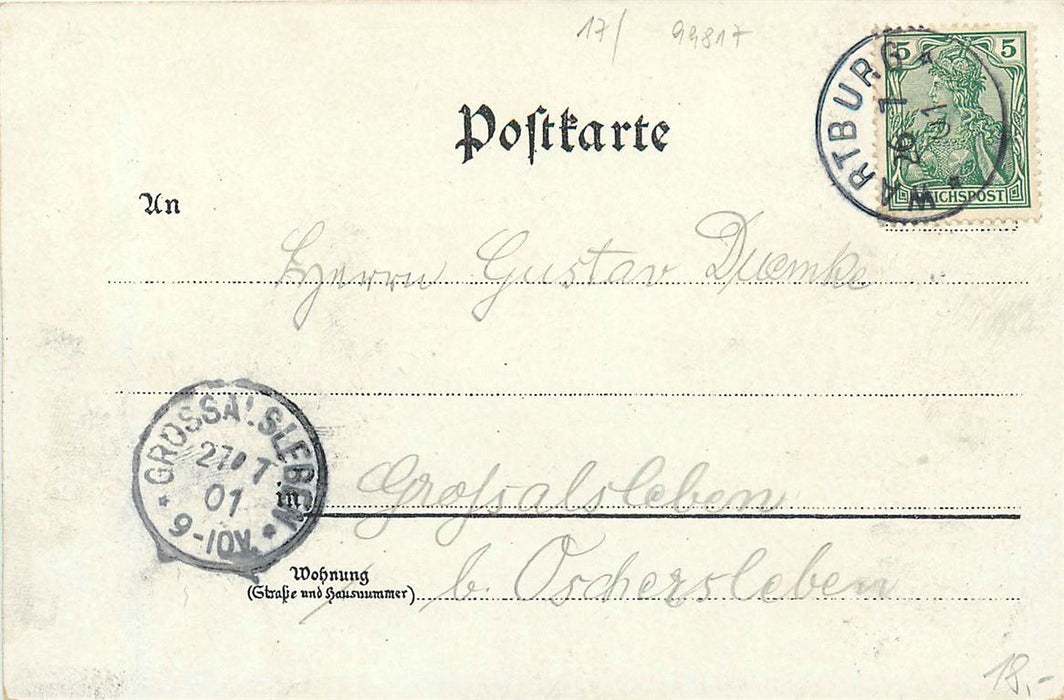 17/ 99817
5 5
REICHSPOST
WARTBURG
26 7
01
Postkarte
An
Herrn Gustav Duemke
GROSSALSLEBEN
27 7
01
9-10V.
in Großalsleben
Wohnung
(Straße und Hausnummer) b. Oschersleben
18,-